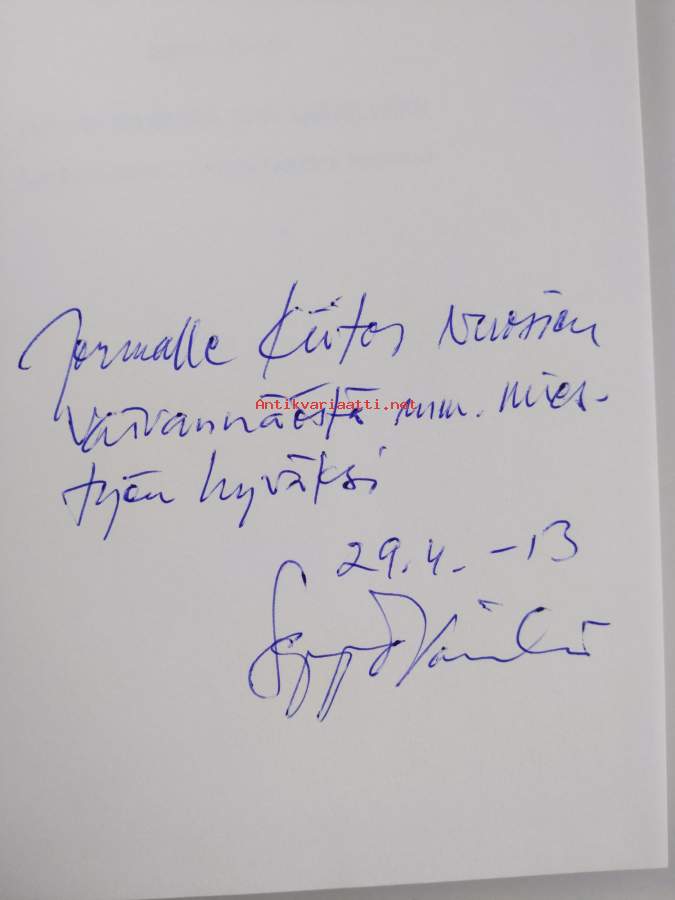 Jormalle Kiitos vuosien
vaivannäöstä mm. mies-
työn hyväksi
Antikvariaatti.net
29.4. -13
Seppo